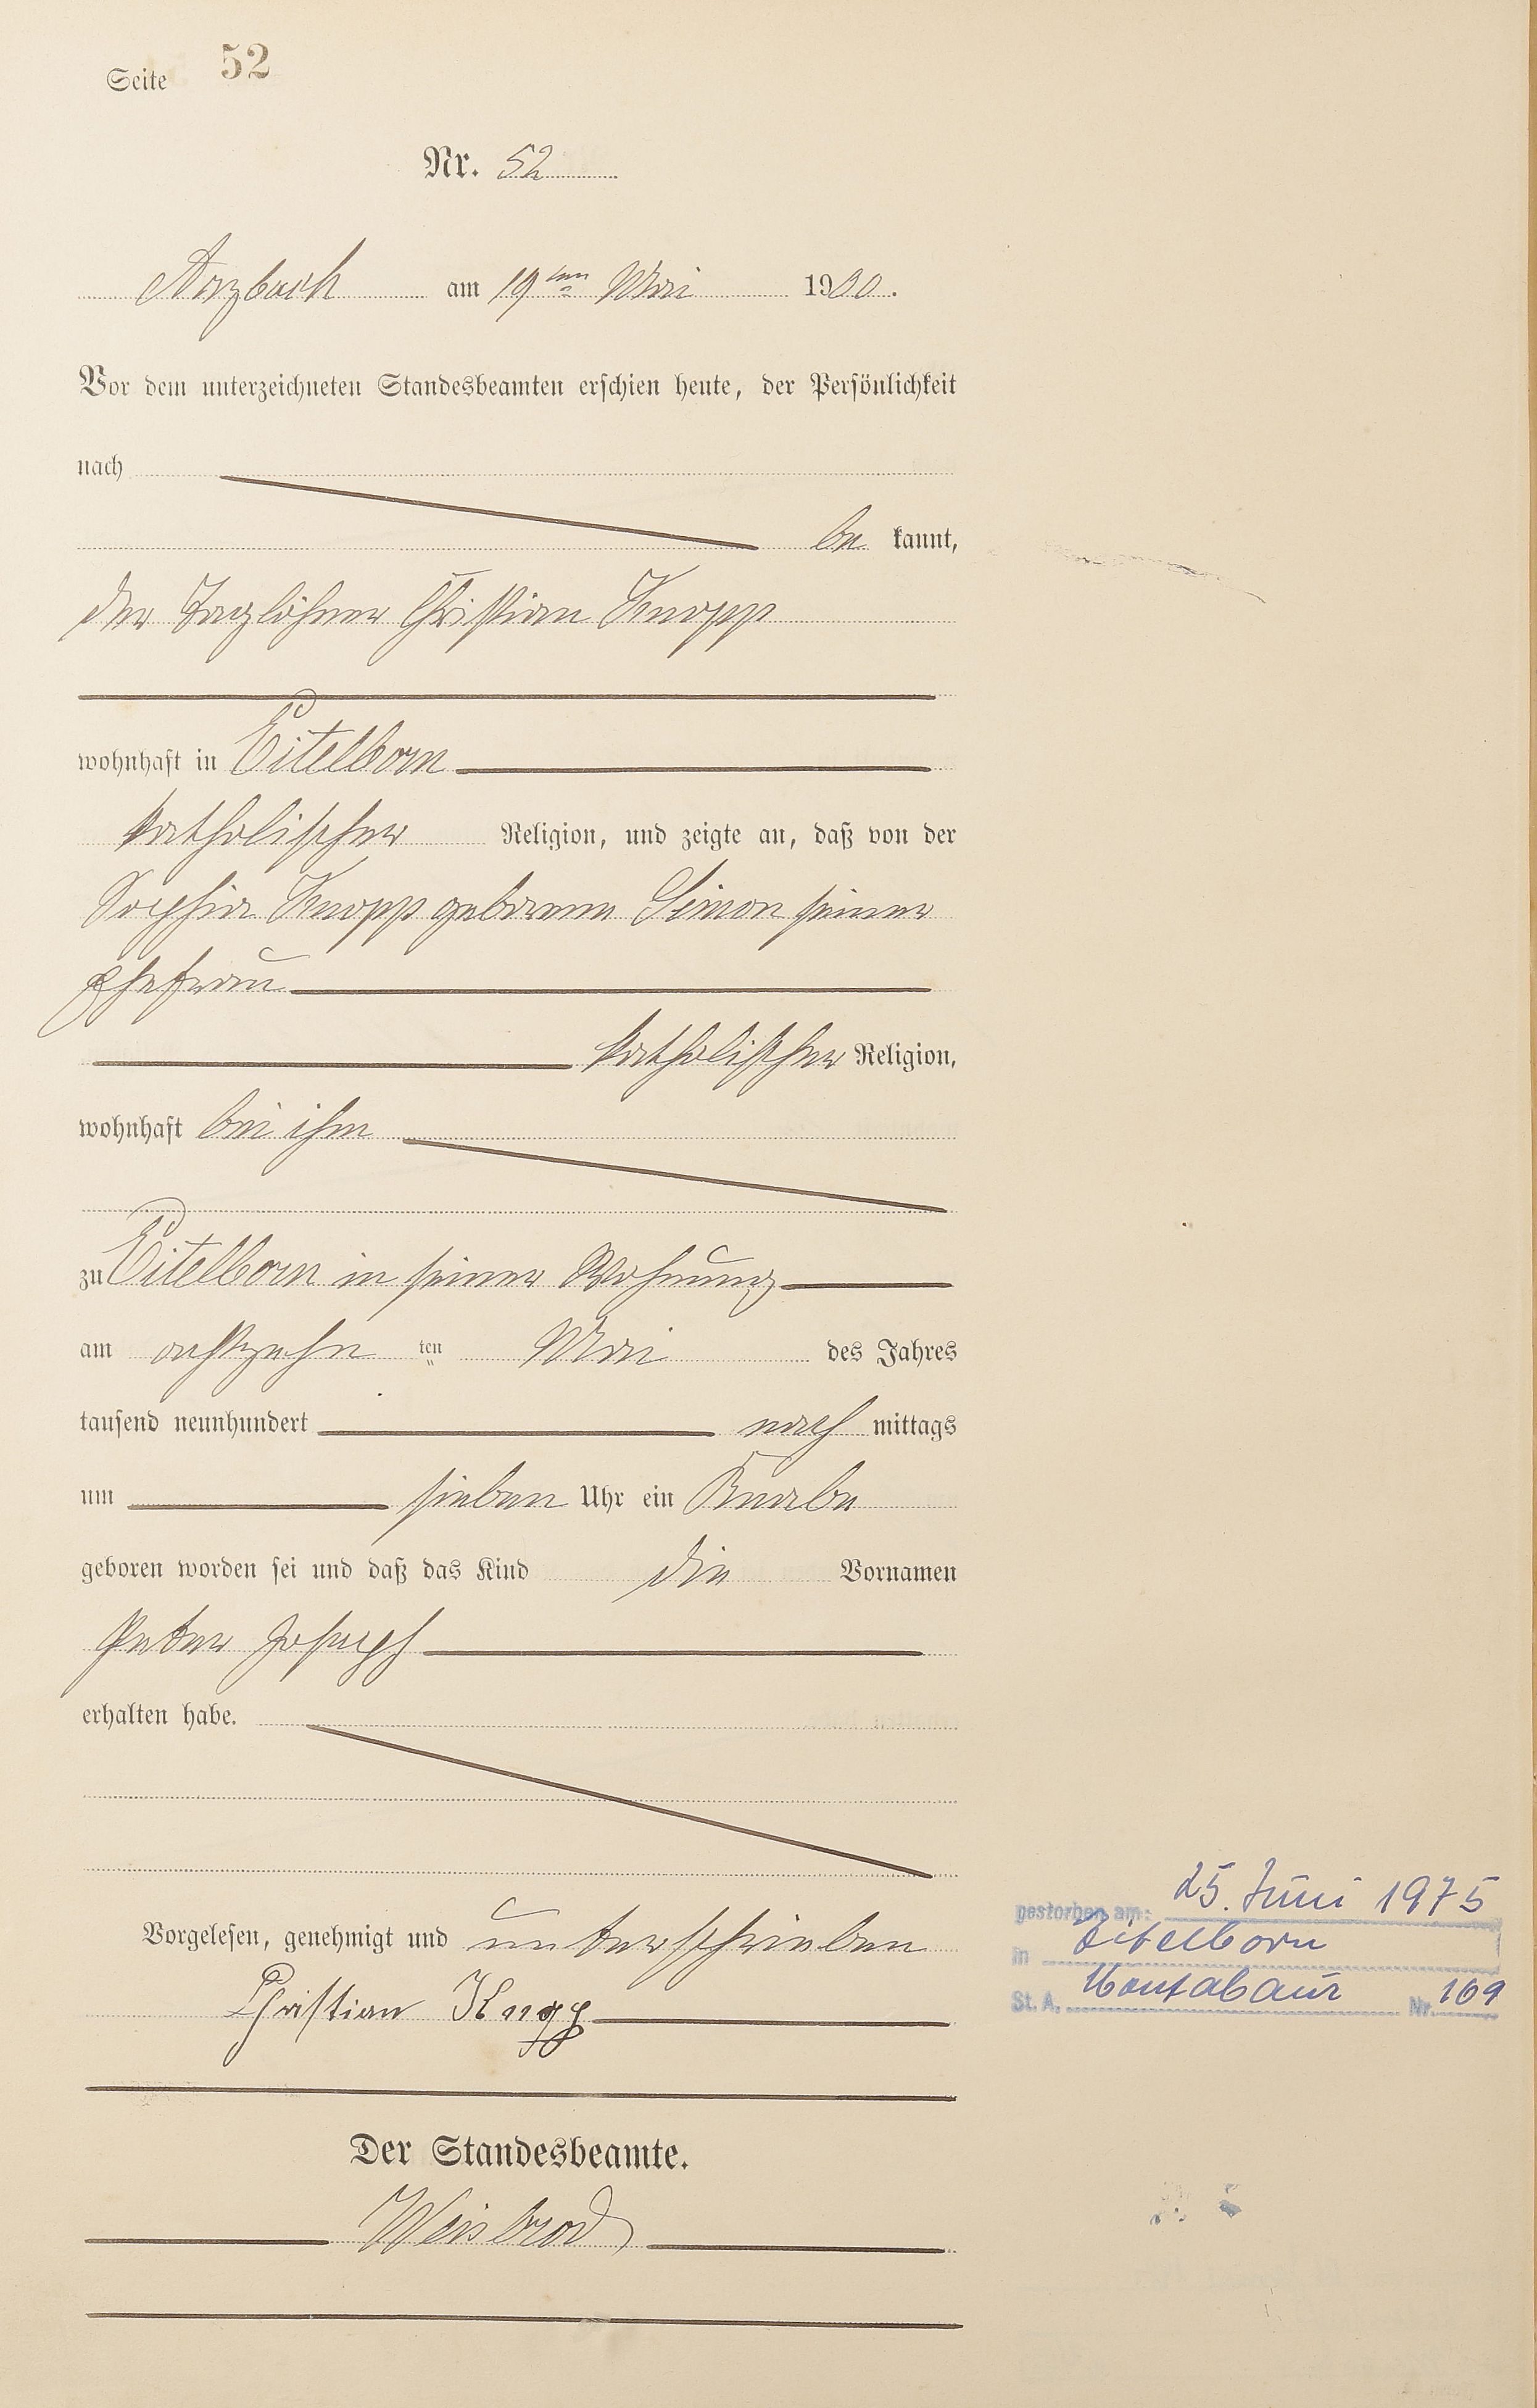 Seite 52
Nr. 52
Arzbach am 19ten Mai 1900.
Vor dem unterzeichneten Standesbeamten erschien heute, der Persönlichkeit
nach
be kannt,
der Taglöhner Christian Knopp
wohnhaft in Eitelborn
katholischer Religion, und zeigte an, daß von der
Sophia Knopp geborene Simon seiner
Ehefrau
katholischer Religion,
wohnhaft bei ihm
zu Eitelborn in seiner Wohnung
am achtzehn ten Mai des Jahres
tausend neunhundert nach mittags
um sieben Uhr ein Knabe
geboren worden sei und daß das Kind die Vornamen
Peter Joseph
erhalten habe.
Vorgelesen, genehmigt und unterschrieben
Christian Knopp
Der Standesbeamte.
Weisbrod
gestorben am: 25. Juni 1975
in Eitelborn
St. A. Montabaur Nr. 109